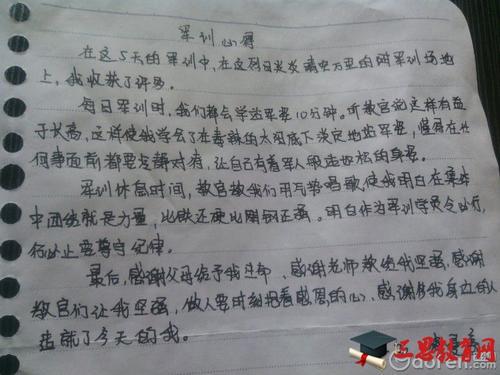 军训心得
在这5天的军训中,在这烈日炎炎晴空万里的军训场地
上,我收获了许多。
每日军训时,我们都会学站军姿10分钟。听教官说这样有益
于长高,这样使我学会了在毒辣的太阳底下淡定地站军姿,懂得在任
何事面前都要去面对,让自己有着军人的身姿。
军训休息时间,教官教我们用气势唱歌使我明白在集体
中团结就是力量,比铁还硬比刚钢还强。明白作为军训学员令必行,
行必止要尊守纪律。
最后,感谢父母给予我生命、感谢老师教给我坚强、感谢
教官们让我坚强,做人要时刻抱着感恩的心、感谢我身边的人
造就了今天的我。
三思教育网
Gaoren.com